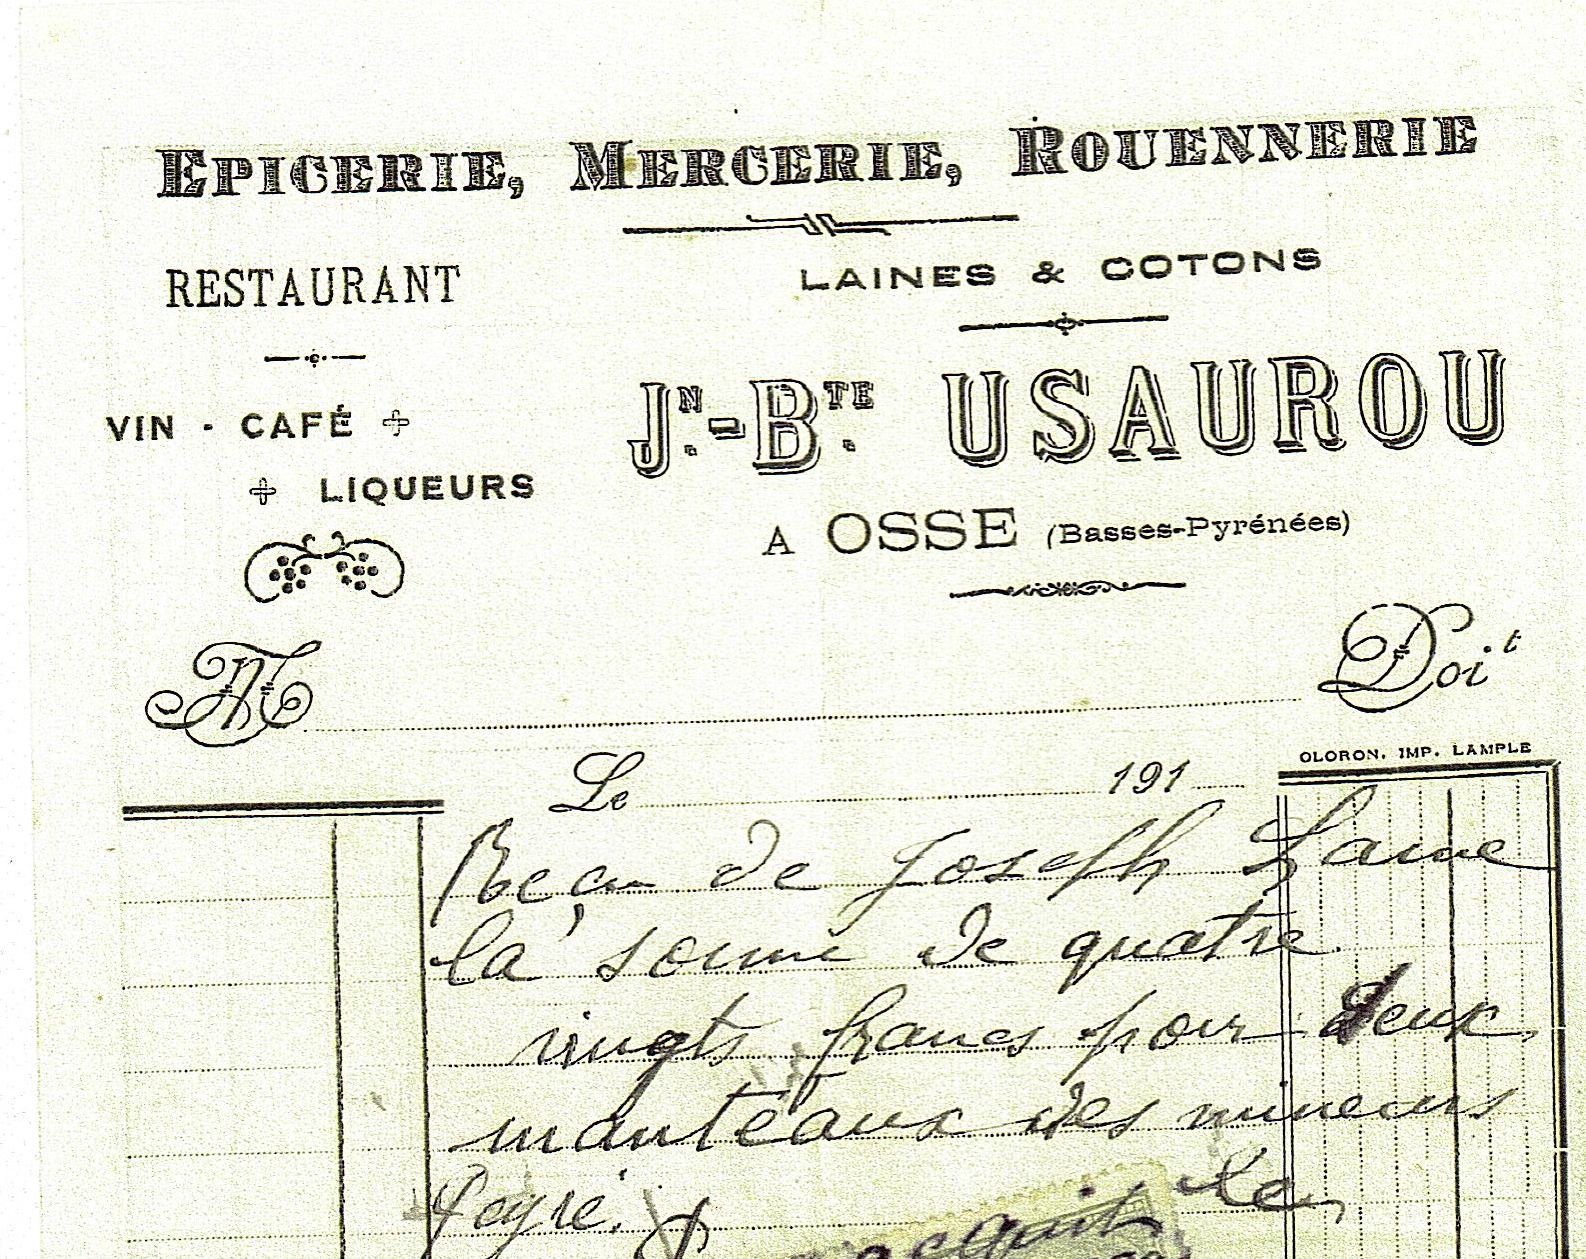 EPICERIE, MERCERIE, ROUENNERIE
RESTAURANT
VIN - CAFÉ
LIQUEURS
LAINES & COTONS
JN.-BTE. USAUROU
A OSSE (Basses-Pyrénées)
M Doit
OLORON. IMP. LAMPLE
Le 191
Reçu de Joseph
la somme de quatre
vingts francs pour deux
manteaux des mineurs
Peyré.
acquit le